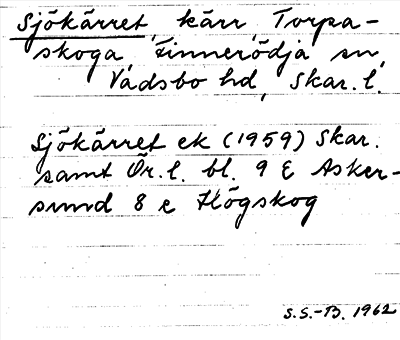 Sjökärret, kärr, Torpa-
skoga, Finnerödja sn,
Vadsbo hd, Skar. l.
Sjökärret ek (1959) Skar.
samt Ör. l. bl. 9 E Asker-
sund 8 e Högskog
S.S.-B. 1962